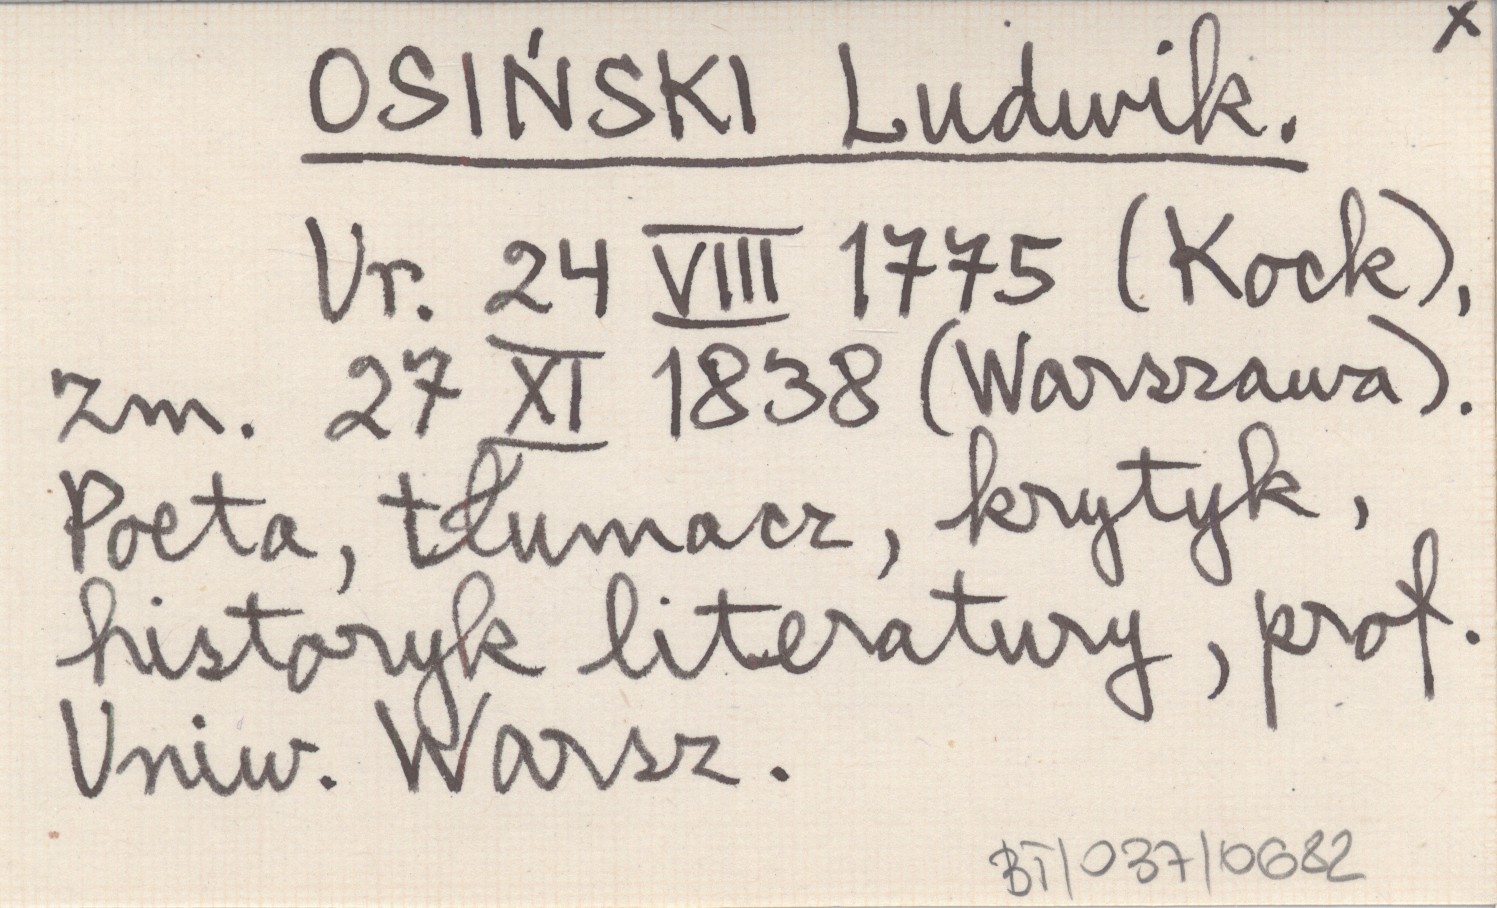 x
OSIŃSKI Ludwik.
Ur. 24 VIII 1775 (Kock),
zm. 27 XI 1838 (Warszawa).
Poeta, tłumacz, krytyk,
historyk literatury, prof.
Uniw. Warsz.
BT/037/0682